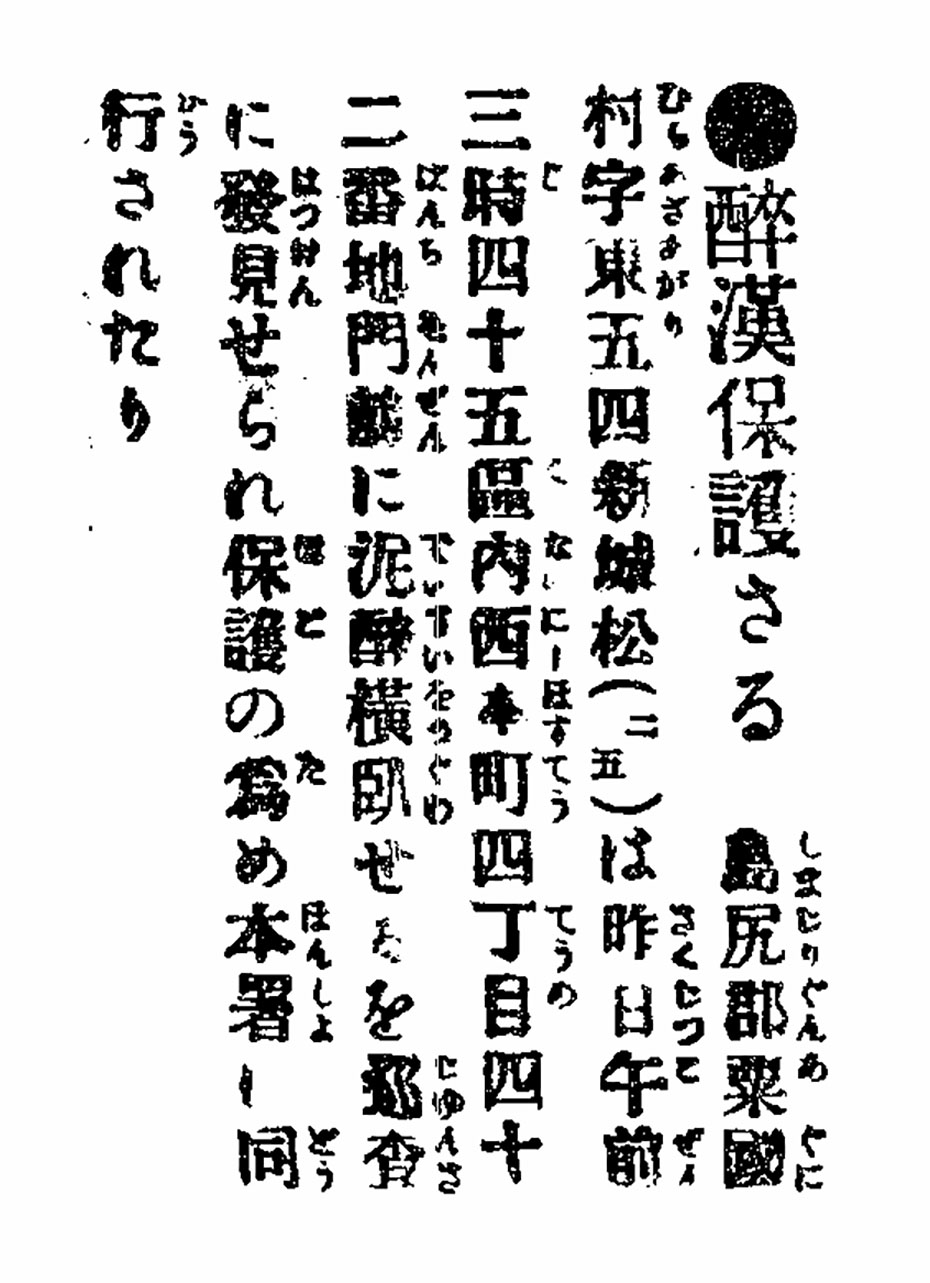 ●醉漢保護さる 島尻郡粟國
村字東五四新城松(二五)は昨日午前
三時四十五區內西本町四丁目四十
二番地門前に泥醉橫臥せるを巡査
に發見せられ保護の為め本署へ同
行されたり